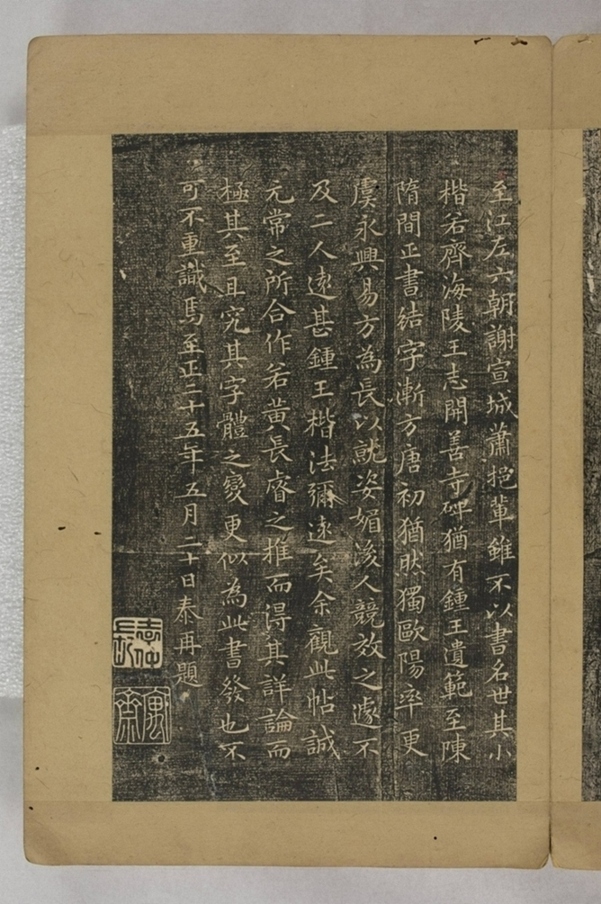 至江左六朝謝宣城蕭挹輩雖不以書名世其小
楷若齊海陵王志開善寺碑猶有鍾王遺範至陳
隋間正書結字漸方唐初猶然獨歐陽率更
虞永興易方為長以就姿媚後人競效之遽不
及二人遠甚鍾王楷法彌遠矣余觀此帖誠
元常之所合作若黃長睿之推而淂其詳論而
極其至且究其字體之變更似為此書發也不
可不重識焉至正二十五年五月二十日泰再題